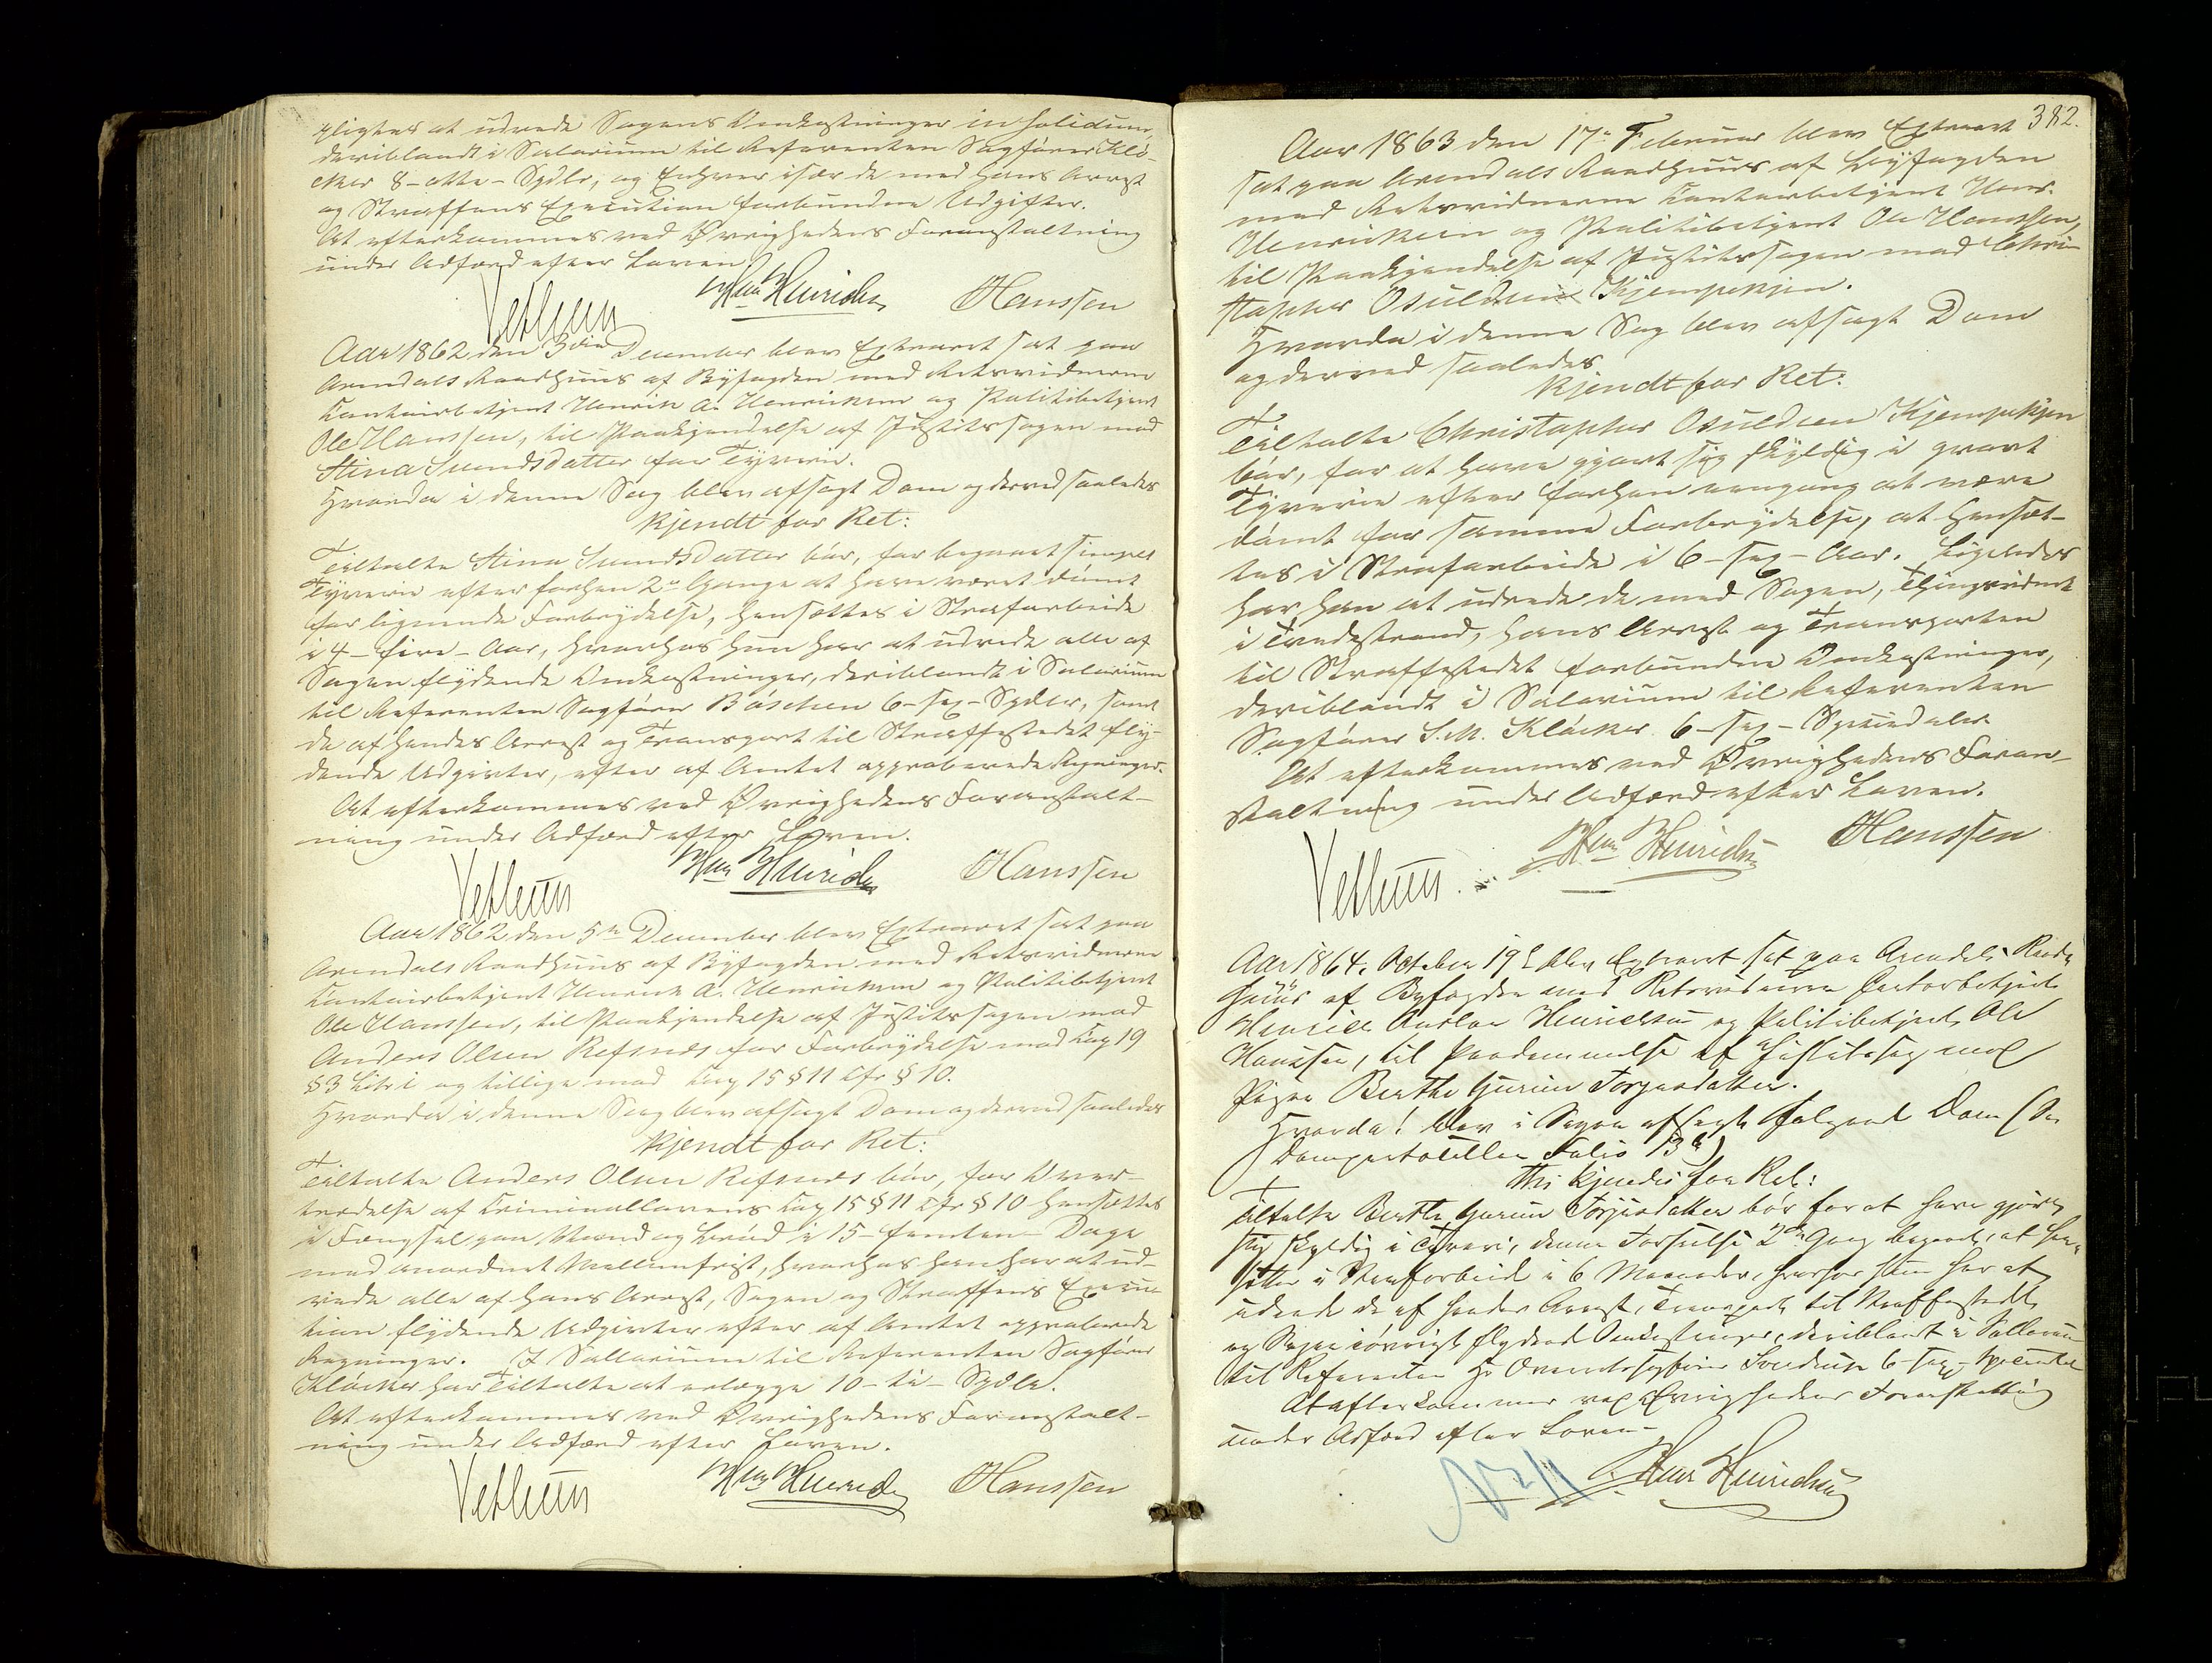 pligtes at udrede Sagens Omkostninger in solidum,
deriblandt i Salarium til Referenten Sagfører Klö-
cker 8 - otte - Spdlr, og Enhver især de med hans Arrest
og Straffens Execution forbundne Udgifter.
At efterkommes ved Øvrighedens Foranstaltning
under Adfærd efter Loven.
Vethuus Henrichsen OHanssen
Aar 1862 den 3die December blev Extraret sat paa
Arendals Raadhuus af Byfogden med Retsvidnerne
Contoirbetjent Henrik A. Henriksen og Politibetjent
Ole Hanssen, til Paakjendelse af Justitssagen mod
Stina SvendsDatter for Tyveri.
Hvorda i denne Sag blev afsagt Dom og derved saaledes
kjendt for Ret:
Tiltalte Stina SvendsDatter bör, for begaaet simpelt
Tyverie efter forhen 2de Gange at have været dömt
for lignende Forbrydelse, hensættes i Strafarbeide
i 4 - fire - Aar, hvorhos hun har at udrede alle af
Sagen flydende Omkostninger, deriblandt i Salarium
til Referenten Sagfører Böschen 6 - sex - Spdlr, samt
de af hendes Arrest og Transport til Straffestedet fly-
dende Udgivter, efter af Amtet approberede Regninger.
At efterkommes ved Øvrighedens Foranstalt-
ning under Adfærd efter Loven.
Vethuus Henrichsen OHanssen
Aar 1862 den 5te December blev Extraret sat paa
Arendals Raadhuus af Byfogden med Retsvidnerne
Contoirbetjent Henrik A. Henriksen og Politibetjent
Ole Hanssen, til Paakjendelse af Justitssagen mod
Anders Olsen Refsnes for Forbrydelse mod Cap 19
§ 3 Litr i og tillige mod Cap 15 § 11 cfr § 10.
Hvorda i denne Sag blev afsagt Dom og derved saaledes
kjendt for Ret:
Tiltalte Anders Olsen Refsnes bör, for Over-
trædelse af Criminallovens Cap 15 § 11 cfr § 10 hensættes
i Fængsel paa Vand og Bröd i 15 - femten - Dage
med anordnet Mellemfrist, hvorhos han har at ud-
rede alle af hans Arrest, Sagen og Straffens Execu-
tion flydende Udgivter efter af Amtet approberede
Regninger. I Sallarium til Referenten Sagfører
Klöcker har Tiltalte at erlægge 10 - ti - Spdlr.
At efterkommes ved Øvrighedens Foranstalt-
ning under Adfærd efter Loven.
Vethuus Henrichsen OHanssen
382.
Aar 1863 den 17de Februar blev Extraret
sat paa Arendals Raadhuus af Byfogden
med Retsvidnerne Contoirbetjent Hens.
Henriksen og Politibetjent Ole Hanssen,
til Paakjendelse af Justitssagen mod Chri-
stopher Osuldsen Kjempekjen.
Hvorda i denne Sag blev afsagt Dom
og derved saaledes
kjendt for Ret:
Tiltalte Christopher Osuldsen Kjempekjen
bör, for at have gjort sig skyldig i grovt
Tyverie efter forhen eengang at være
dömt for samme Forbrydelse, at hensæt-
tes i Strafarbeide i 6 - sex - Aar. Ligeledes
har han at udrede de med Sagen, Thingsvidnet
i Tvedestrand, hans Arrest og Transporten
til Straffestedet forbundne Omkostninger,
deriblandt i Salarium til Referenten
Sagfører S. M. Klöcker 6 - sex - Speciedaler.
At efterkommes ved Øvrighedens Foran-
staltning under Adfærd efter Loven.
Vethuus. Henrichsen OHanssen
Aar 1864. October 19de blev Extraret sat paa Arendals Raad-
huus af Byfogden med Retsvidnerne Contorbetjent
Henrich Henrichsen og Politibetjent Ole
Hanssen, til Paadømmelse af Justitssag mod
Pigen Berthe Gurine Torjersdatter.
Hvorda: blev i Sagen afsagt følgende Dom (See
Domsprotocollen Folio 13)
thi kjendes for Ret:
Tiltalte Berthe Gurine Torjersdatter bör for at have gjort
sig skyldig i Tyveri, denne Forseelse 2den Gang begaaet, at hen-
sættes i Strafarbeid i 6 Maaneder, hvorhos hun har at
udrede de af hendes Arrest, Transport til Straffestedet
og Sagen iøvrigt flydende Omkostninger, deriblandt i Sallarium
til Referenten Hr Overretssagfører 6 - sex - Speciedaler
At efterkommes ved Øvrighedens Foranstaltning
under Adfærd efter Loven.
Henrichsen
No 11